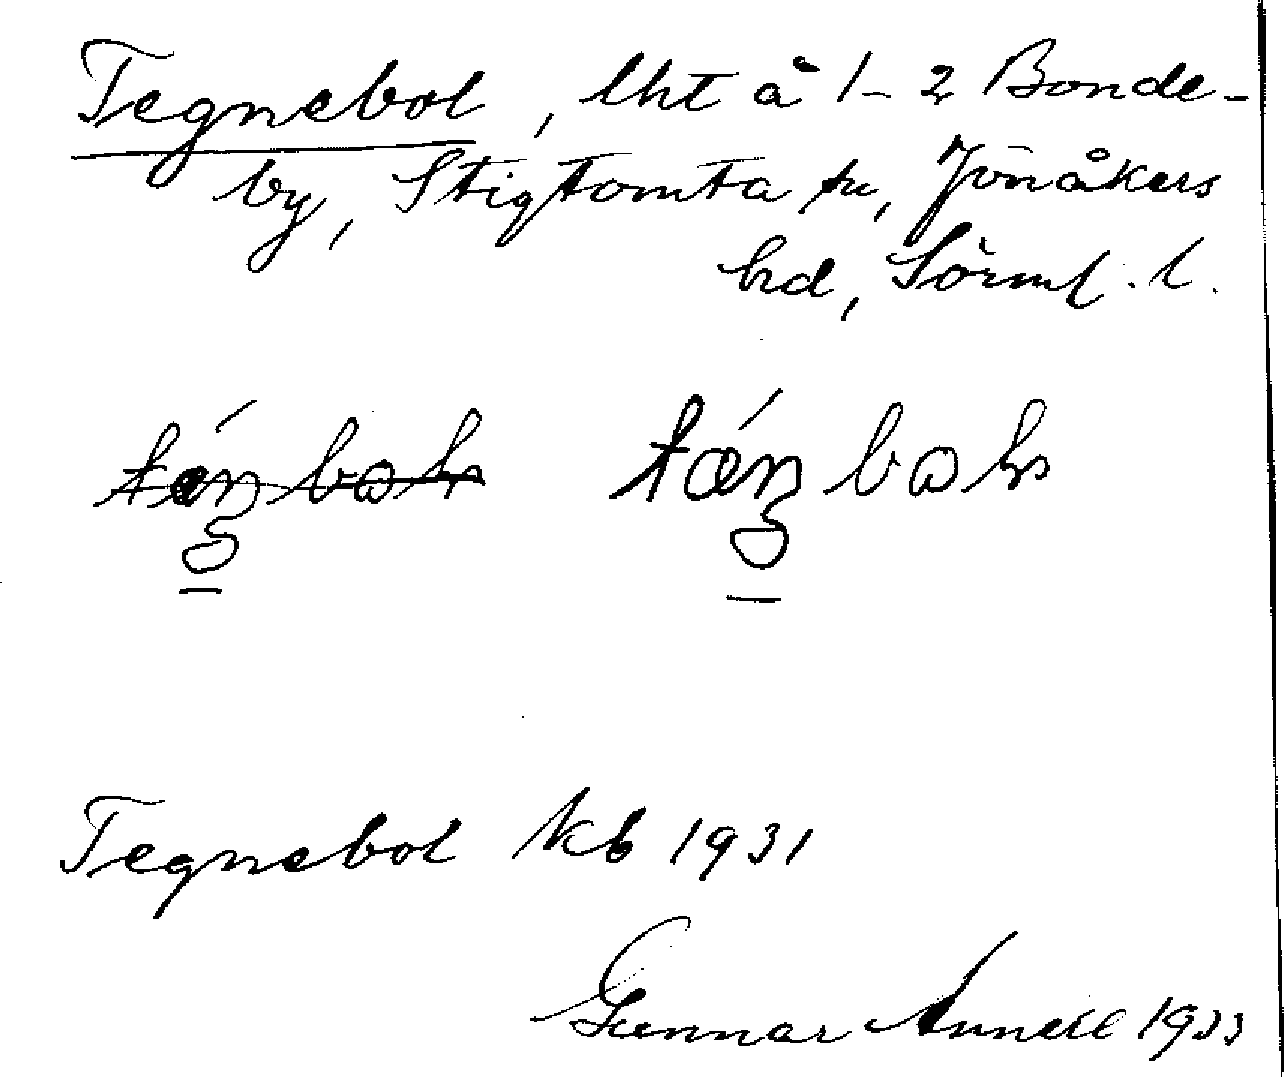 Tegnebol, lht å 1-2 Bonde-
by, Stigtomta sn, Jönåkers
hd, Sörml. l.
Tegnebol kb 1931
Gunnar Annell 1933